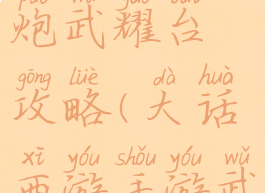 炮武耀台
gōng lüè dà huà
攻略(大话
xī yóu shǒu yóu wǔ
西游手游武